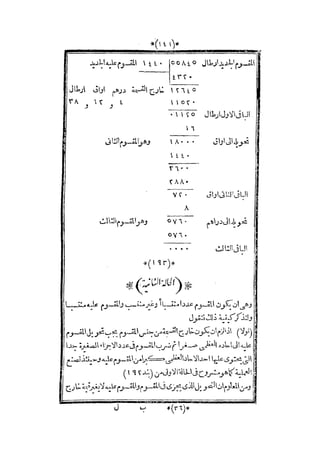 *(١٤١)*
المقسوم الجديد ارطال ٥٥٨٤٥ ١٤٤٠ المقسوم عليه الجديد
٤٣٢٠
١٢٦٤٥ خارج القسمة درهم اواق ارطال
١١٥٢٠ ٤ و ١٢ و ٣٨
الباقى الاول ارطال ٠١١٢٥
١٦
تحويل الى اواق ١٨٠٠٠ وهو المقسوم الثانى
١٤٤٠
٣٦٠٠
٢٨٨٠
الباقى الثانى اواق ٧٢٠
٨
تحويل الى دراهم ٥٧٦٠ وهو المقسوم الثالث
٥٧٦٠
الباقى الثالث ٠٠٠٠
*(١٩٣)*
*(الحالة الثانية)*
وهى ان يكون المقسوم عددا منتسبا أو غير منتسب والمقسوم عليه منتسبا
ولنذكر كيفية ذلك فنقول
(اولا) اذا لزم ان يكون خارج القسمة من جنس المقسوم يجب تحويل المقسوم
عليه الى آحاده العظمى ثم ضرب المقسوم فى عدد الاجزاء الصغيرة جدا
التى يحتوى عليها احد الآحاد العظمى من المقسوم عليه وحينئذ تصنع
العملية كما هو مشروح فى الحالة الاولى من (بند ١٩٢)
ومن المعلوم ان التحويل الذى يجرى فى المقسوم والمقسوم عليه لا يغير قيمة خارج
*(٣٦)* ب ل